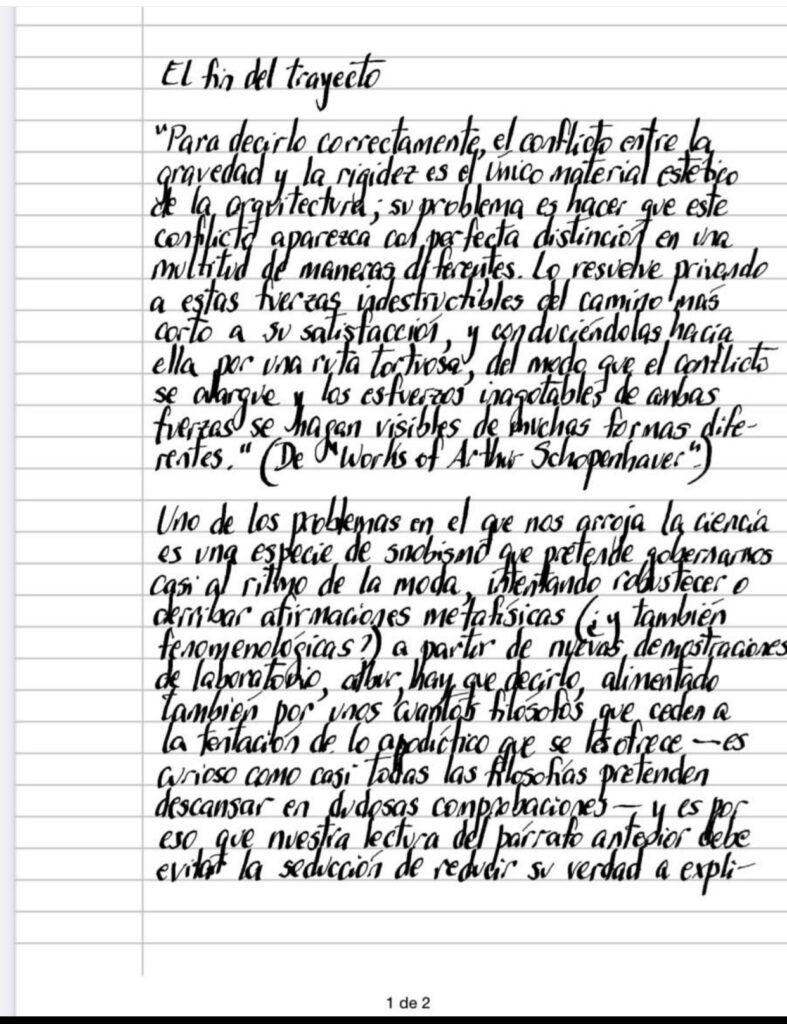 El fin del trayecto
"Para decirlo correctamente, el conflicto entre la
gravedad y la rigidez es el único material estético
de la arquitectura; su problema es hacer que este
conflicto aparezca con perfecta distinción en una
multitud de maneras diferentes. Lo resuelve privando
a estas fuerzas indestructibles del camino más
corto a su satisfacción, y conduciéndolas hacia
ella por una ruta tortuosa, del modo que el conflicto
se alargue y los esfuerzos inagotables de ambas
fuerzas se hagan visibles de muchas formas dife-
rentes." (De "Works of Arthur Schopenhauer".)
Uno de los problemas en el que nos arroja la ciencia
es una especie de snobismo que pretende gobernarnos
casi al ritmo de la moda, intentando robustecer o
derribar afirmaciones metafísicas (¿y también
fenomenológicas?) a partir de nuevas demostraciones
de laboratorio, albur, hay que decirlo, alimentado
también por unos cuantos filósofos que ceden a
la tentación de lo apodíctico que se les ofrece —es
curioso como casi todas las filosofías pretenden
descansar en dudosas comprobaciones— y es por
eso que nuestra lectura del párrafo anterior debe
evitar la seducción de reducir su verdad a expli-
1 de 2